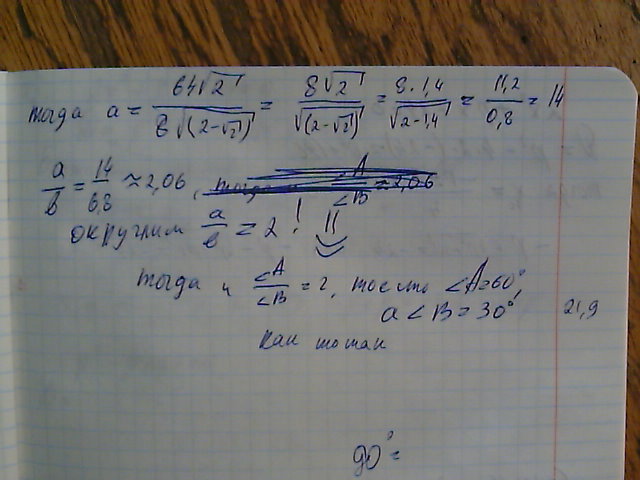 тогда a = 64√2 / 8√(2-√2) = 8√2 / √(2-√2) = 8·1,4 / √2-1,4 = 11,2 / 0,8 = 14
a/b = 14/6,8 ≈ 2,06,
округлим a/b = 2 ! !!
тогда и ∠A/∠B = 2, то есть ∠A=60°,
а ∠B = 30° 21,9
как то так
90° =